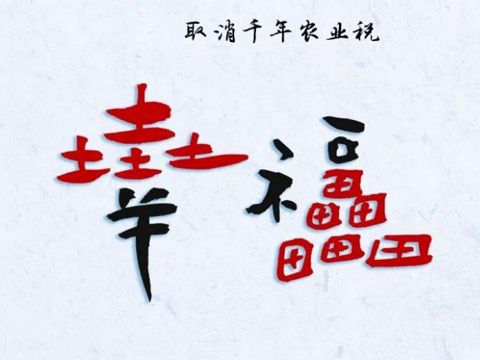 取消千年农业税
幸福